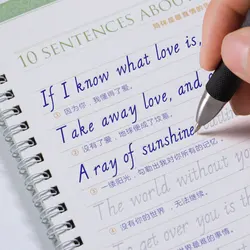 10 SENTENCES ABOUT
If I know what love is,
①因为你，我懂得了爱。
Take away love, and
②没有了爱，地球便成了坟墓。
A ray of sunshine
③一缕阳光，勾勒出我对你所有的记忆。
The world without
没有你的世界，无法继续。
get over you is the